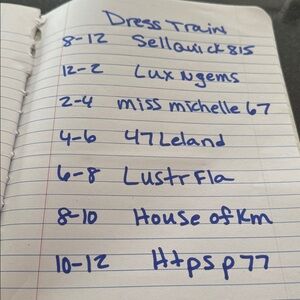 Dress Train
8-12 Sellquick815
12-2 Lux N gems
2-4 miss michelle 67
4-6 47Leland
6-8 Lustr Fla
8-10 House of Km
10-12 Htps p77